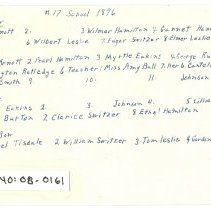 #17 School 1896
Row
nott 2. 3 Wilmar Hamilton 4 Garnet Ham
6 Wilbert Leslie 7 Edgar Switzer 8 Elmer Leslie
nott 2 Pearl Hamilton 3 Myrtle Eakins 4 George Ru
gton Rutledge 6 Teacher: Miss Amy Ball 7 Herb Cantel
Smith 9 10. 11 Johnson
Eakins 2. 3 Johnson 4. 5 Lillia
Burton 7 Clarice Switzer 8 Ethel Hamilton
Row
el Tisdale 2. William Switzer 3 Tom Leslie 4 Gordon
NO: OB-0161